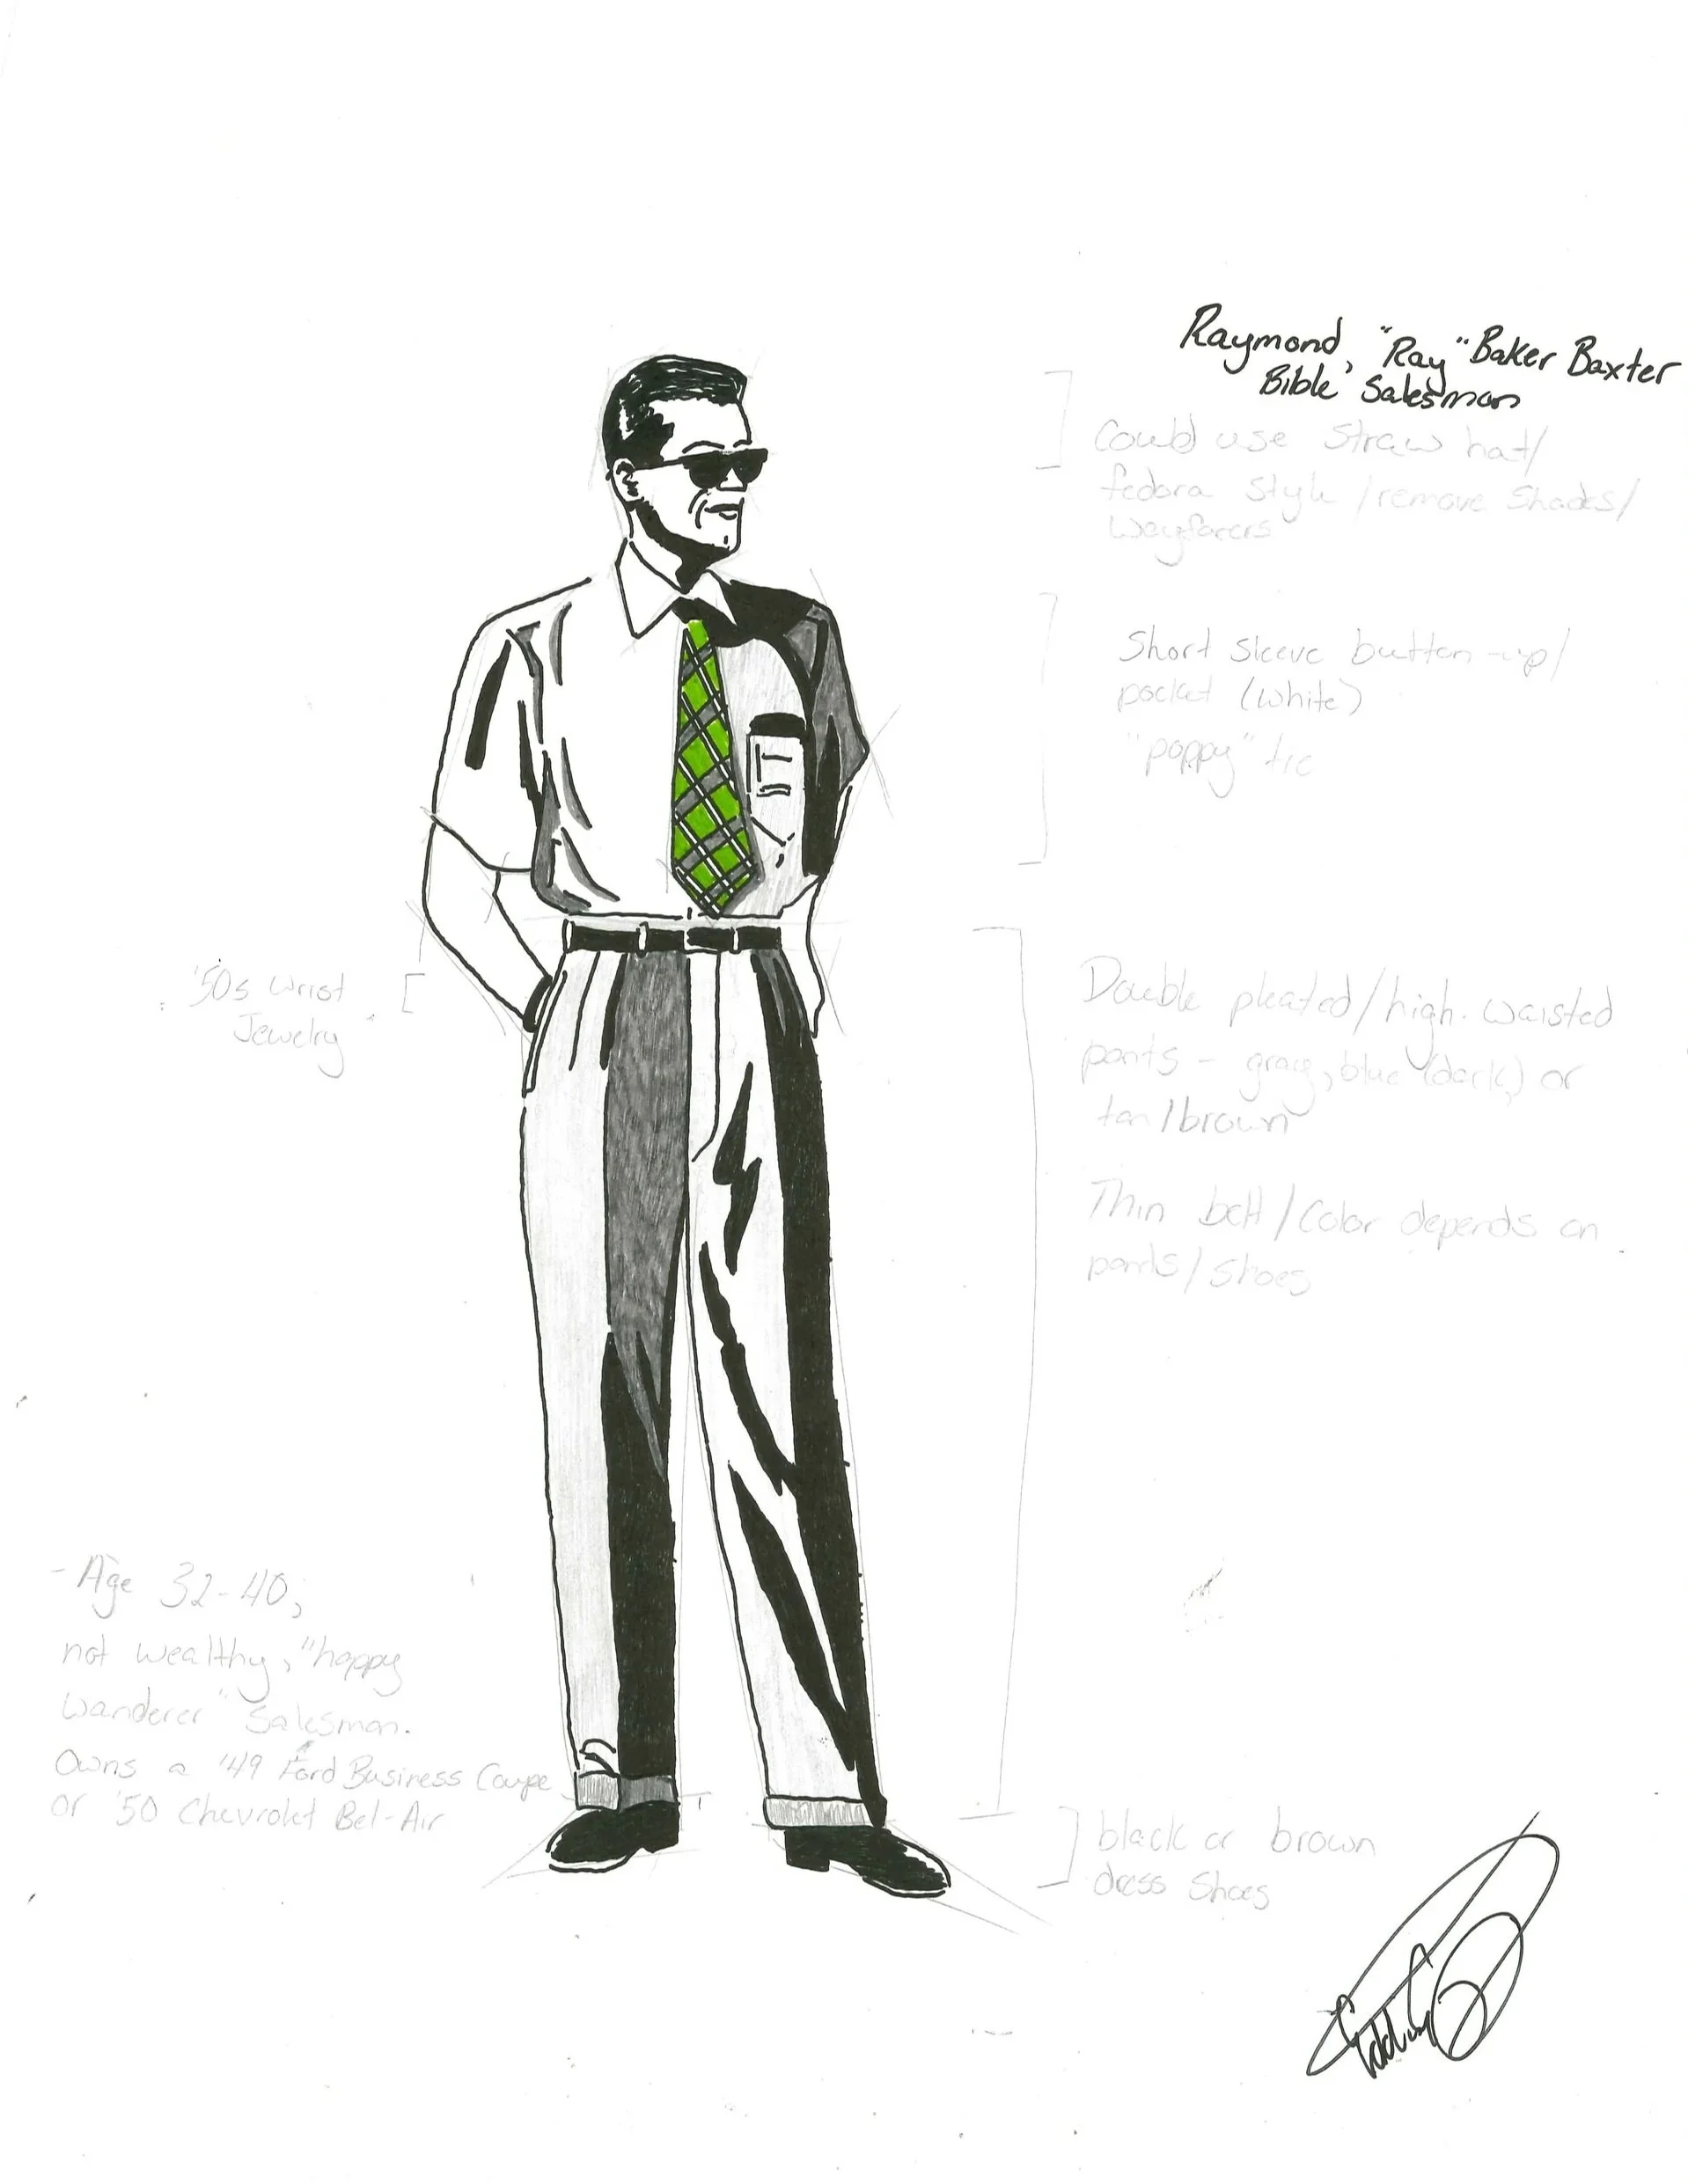 Raymond, "Ray" Baker Baxter
Bible Salesman
Could use straw hat/
fedora style/remove shades/
wayfarers
Short sleeve button-up/
pocket (white)
"poppy" tie
'50s wrist
Jewelry
Double pleated/high-waisted
pants - gray, blue (dark) or
tan/brown
Thin belt/color depends on
pants/shoes
- Age 32-40,
not wealthy, "happy
wanderer" salesman.
Owns a '49 Ford Business Coupe
or '50 Chevrolet Bel-Air
black or brown
dress shoes